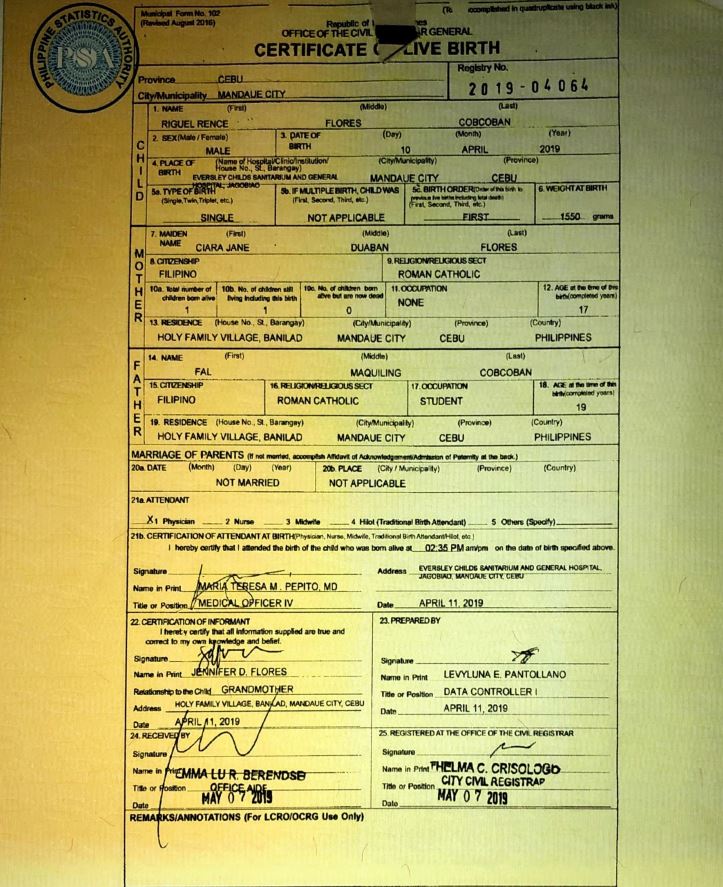 PHILIPPINE STATISTICS AUTHORITY
PSA
Municipal Form No. 102
(Revised August 2016)
(To accomplished in quadruplicate using black ink)
Republic of
OFFICE OF THE CIVIL AR GENERAL
CERTIFICATE LIVE BIRTH
Registry No.
2019-04064
Province CEBU
City/Municipality MANDAUE CITY
CHILD
1. NAME (First) (Middle) (Last)
RIGUEL RENCE FLORES COBCOBAN
2. SEX (Male / Female) 3. DATE OF BIRTH (Day) (Month) (Year)
MALE 10 APRIL 2019
4. PLACE OF BIRTH (Name of Hospital/Clinic/Institution/ House No., St., Barangay) (City/Municipality) (Province)
EVERSLEY CHILDS SANITARIUM AND GENERAL HOSPITAL, JAGOBIAO MANDAUE CITY CEBU
5a. TYPE OF BIRTH (Single, Twin, Triplet, etc.) 5b. IF MULTIPLE BIRTH, CHILD WAS (First, Second, Third, etc.) 5c. BIRTH ORDER (Order of this birth to previous live births including fetal death) (First, Second, Third, etc.) 6. WEIGHT AT BIRTH
SINGLE NOT APPLICABLE FIRST 1550 grams
MOTHER
7. MAIDEN NAME (First) (Middle) (Last)
CIARA JANE DUABAN FLORES
8. CITIZENSHIP 9. RELIGION/RELIGIOUS SECT
FILIPINO ROMAN CATHOLIC
10a. Total number of children born alive 10b. No. of children still living including this birth 10c. No. of children born alive but are now dead 11. OCCUPATION 12. AGE at the time of this birth (completed years)
1 1 0 NONE 17
13. RESIDENCE (House No., St., Barangay) (City/Municipality) (Province) (Country)
HOLY FAMILY VILLAGE, BANILAD MANDAUE CITY CEBU PHILIPPINES
FATHER
14. NAME (First) (Middle) (Last)
FAL MAQUILING COBCOBAN
15. CITIZENSHIP 16. RELIGION/RELIGIOUS SECT 17. OCCUPATION 18. AGE at the time of this birth (completed years)
FILIPINO ROMAN CATHOLIC STUDENT 19
19. RESIDENCE (House No., St., Barangay) (City/Municipality) (Province) (Country)
HOLY FAMILY VILLAGE, BANILAD MANDAUE CITY CEBU PHILIPPINES
MARRIAGE OF PARENTS (If not married, accomplish Affidavit of Acknowledgement/Admission of Paternity at the back.)
20a. DATE (Month) (Day) (Year) 20b. PLACE (City / Municipality) (Province) (Country)
NOT MARRIED NOT APPLICABLE
21a. ATTENDANT
X 1 Physician 2 Nurse 3 Midwife 4 Hilot (Traditional Birth Attendant) 5 Others (Specify)
21b. CERTIFICATION OF ATTENDANT AT BIRTH (Physician, Nurse, Midwife, Traditional Birth Attendant/Hilot, etc.)
I hereby certify that I attended the birth of the child who was born alive at 02:35 PM am/pm on the date of birth specified above.
Signature
Name in Print MARIA TERESA M. PEPITO, MD
Title or Position MEDICAL OFFICER IV
Address EVERSLEY CHILDS SANITARIUM AND GENERAL HOSPITAL,
JAGOBIAO, MANDAUE CITY, CEBU
Date APRIL 11, 2019
22. CERTIFICATION OF INFORMANT
I hereby certify that all information supplied are true and
correct to my own knowledge and belief.
Signature
Name in Print JENNIFER D. FLORES
Relationship to the Child GRANDMOTHER
Address HOLY FAMILY VILLAGE, BANILAD, MANDAUE CITY, CEBU
Date APRIL 11, 2019
23. PREPARED BY
Signature
Name in Print LEVYLUNA E. PANTOLLANO
Title or Position DATA CONTROLLER I
Date APRIL 11, 2019
24. RECEIVED BY
Signature
Name in Print EMMA LU R. BERENDSE
Title or Position OFFICE AIDE
Date MAY 07 2019
25. REGISTERED AT THE OFFICE OF THE CIVIL REGISTRAR
Signature
Name in Print THELMA C. CRISOLOGO
Title or Position CITY CIVIL REGISTRAR
Date MAY 07 2019
REMARKS/ANNOTATIONS (For LCRO/OCRG Use Only)